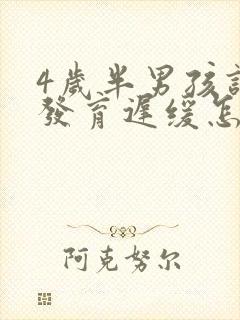 4歲半男孩
發育遲缓怎
阿克努尔